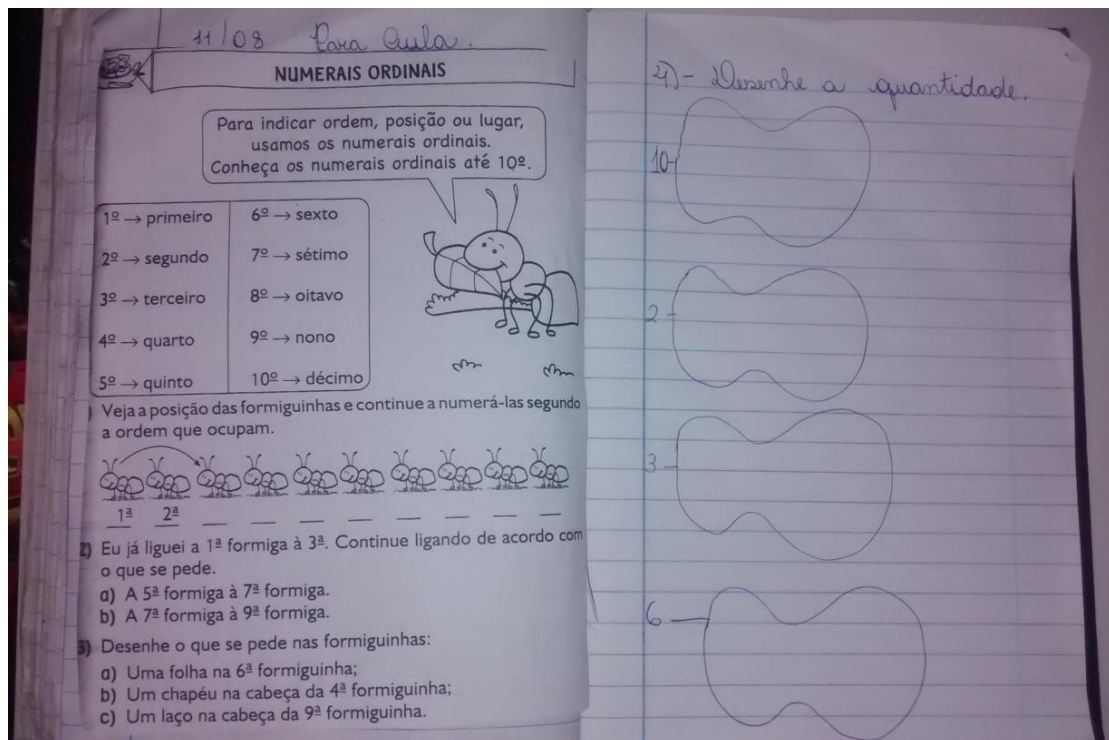 11/08 Para Aula.
NUMERAIS ORDINAIS
Para indicar ordem, posição ou lugar,
usamos os numerais ordinais.
Conheça os numerais ordinais até 10º.
1º → primeiro
2º → segundo
3º → terceiro
4º → quarto
5º → quinto
6º → sexto
7º → sétimo
8º → oitavo
9º → nono
10º → décimo
) Veja a posição das formiguinhas e continue a numerá-las segundo
a ordem que ocupam.
1ª 2ª
2) Eu já liguei a 1ª formiga à 3ª. Continue ligando de acordo com
o que se pede.
a) A 5ª formiga à 7ª formiga.
b) A 7ª formiga à 9ª formiga.
3) Desenhe o que se pede nas formiguinhas:
a) Uma folha na 6ª formiguinha;
b) Um chapéu na cabeça da 4ª formiguinha;
c) Um laço na cabeça da 9ª formiguinha.
4) - Desenhe a quantidade.
10-
2-
3-
6-